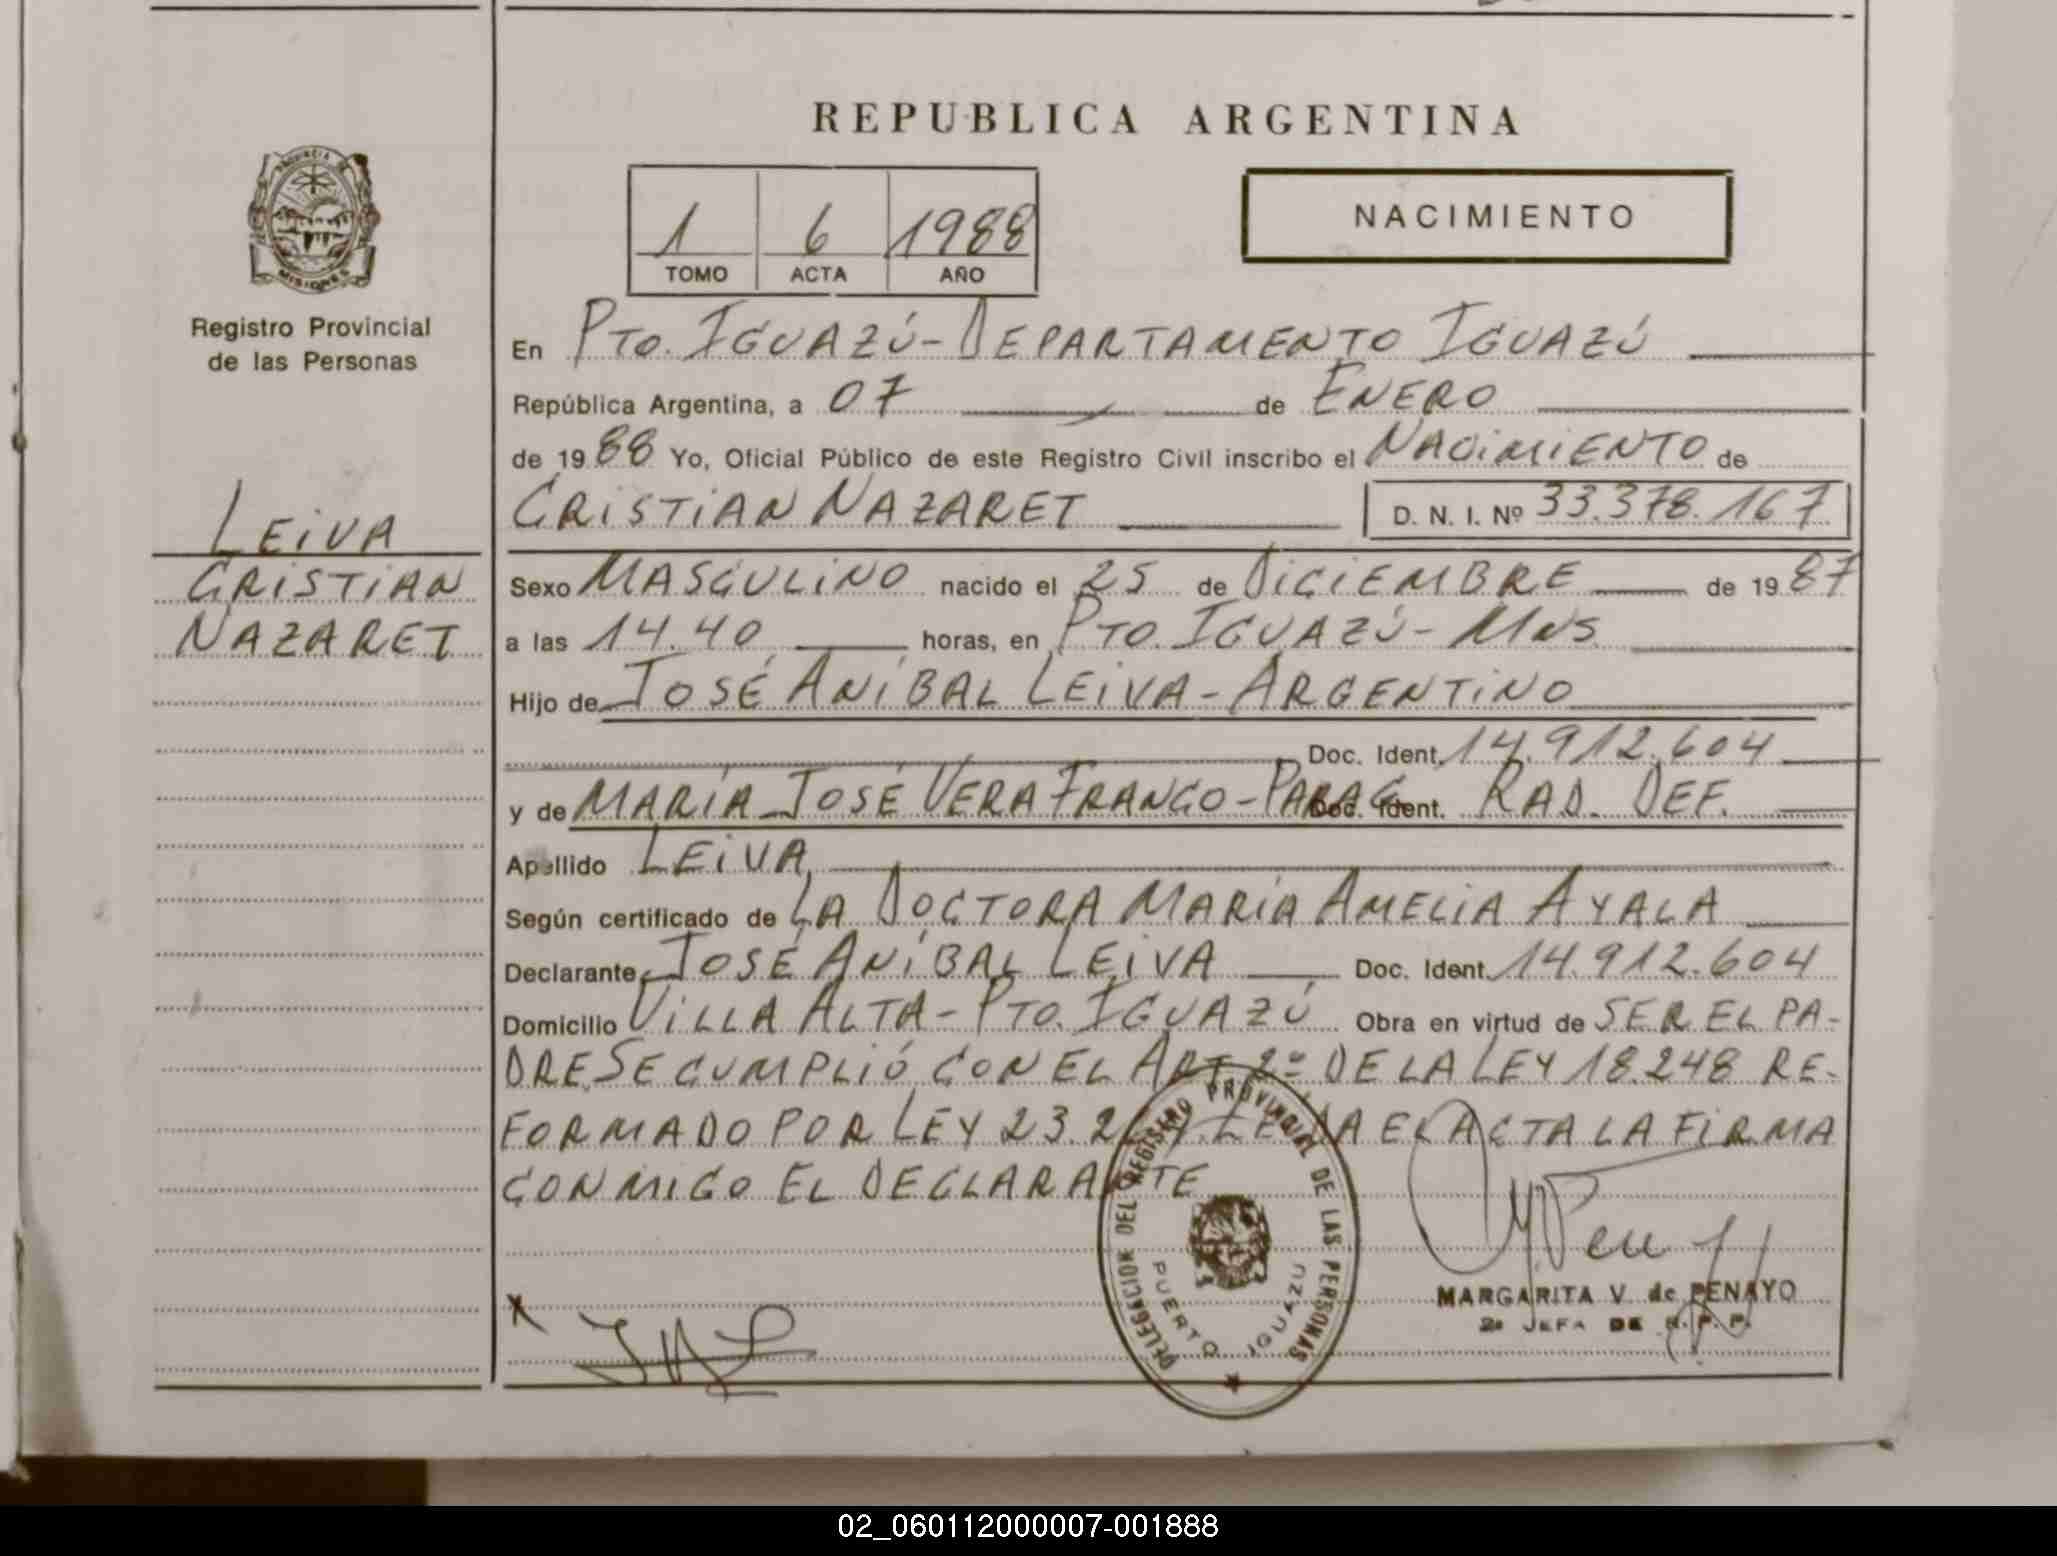 REPUBLICA ARGENTINA
PROVINCIA DE
MISIONES
Registro Provincial
de las Personas
1 6 1988
TOMO ACTA AÑO
NACIMIENTO
En PTO. IGUAZÚ - DEPARTAMENTO IGUAZÚ
República Argentina, a 07 de ENERO
de 1988 Yo, Oficial Público de este Registro Civil inscribo el NACIMIENTO de
CRISTIAN NAZARET D. N. I. Nº 33.378.167
LEIVA
CRISTIAN
NAZARET
Sexo MASCULINO nacido el 25 de DICIEMBRE de 1987
a las 14.40 horas, en PTO. IGUAZÚ - MNS
Hijo de JOSÉ ANÍBAL LEIVA - ARGENTINO
Doc. Ident. 14.912.604
y de MARÍA JOSÉ VERA FRANCO - PARAG Doc. Ident. RAD. DEF.
Apellido LEIVA
Según certificado de LA DOCTORA MARÍA AMELIA AYALA
Declarante JOSÉ ANÍBAL LEIVA Doc. Ident. 14.912.604
Domicilio VILLA ALTA - PTO. IGUAZÚ Obra en virtud de SER EL PA-
DRE. SE CUMPLIÓ CON EL ART 2º DE LA LEY 18.248 RE-
FORMADO POR LEY 23.2 LEÍDA EL ACTA LA FIRMA
CONMIGO EL DECLARANTE
DELEGACION DEL REGISTRO PROVINCIAL DE LAS PERSONAS
PUERTO IGUAZU
MARGARITA V. de PENAYO
2ª JEFA DE R. P. P.
X
02_060112000007-001888